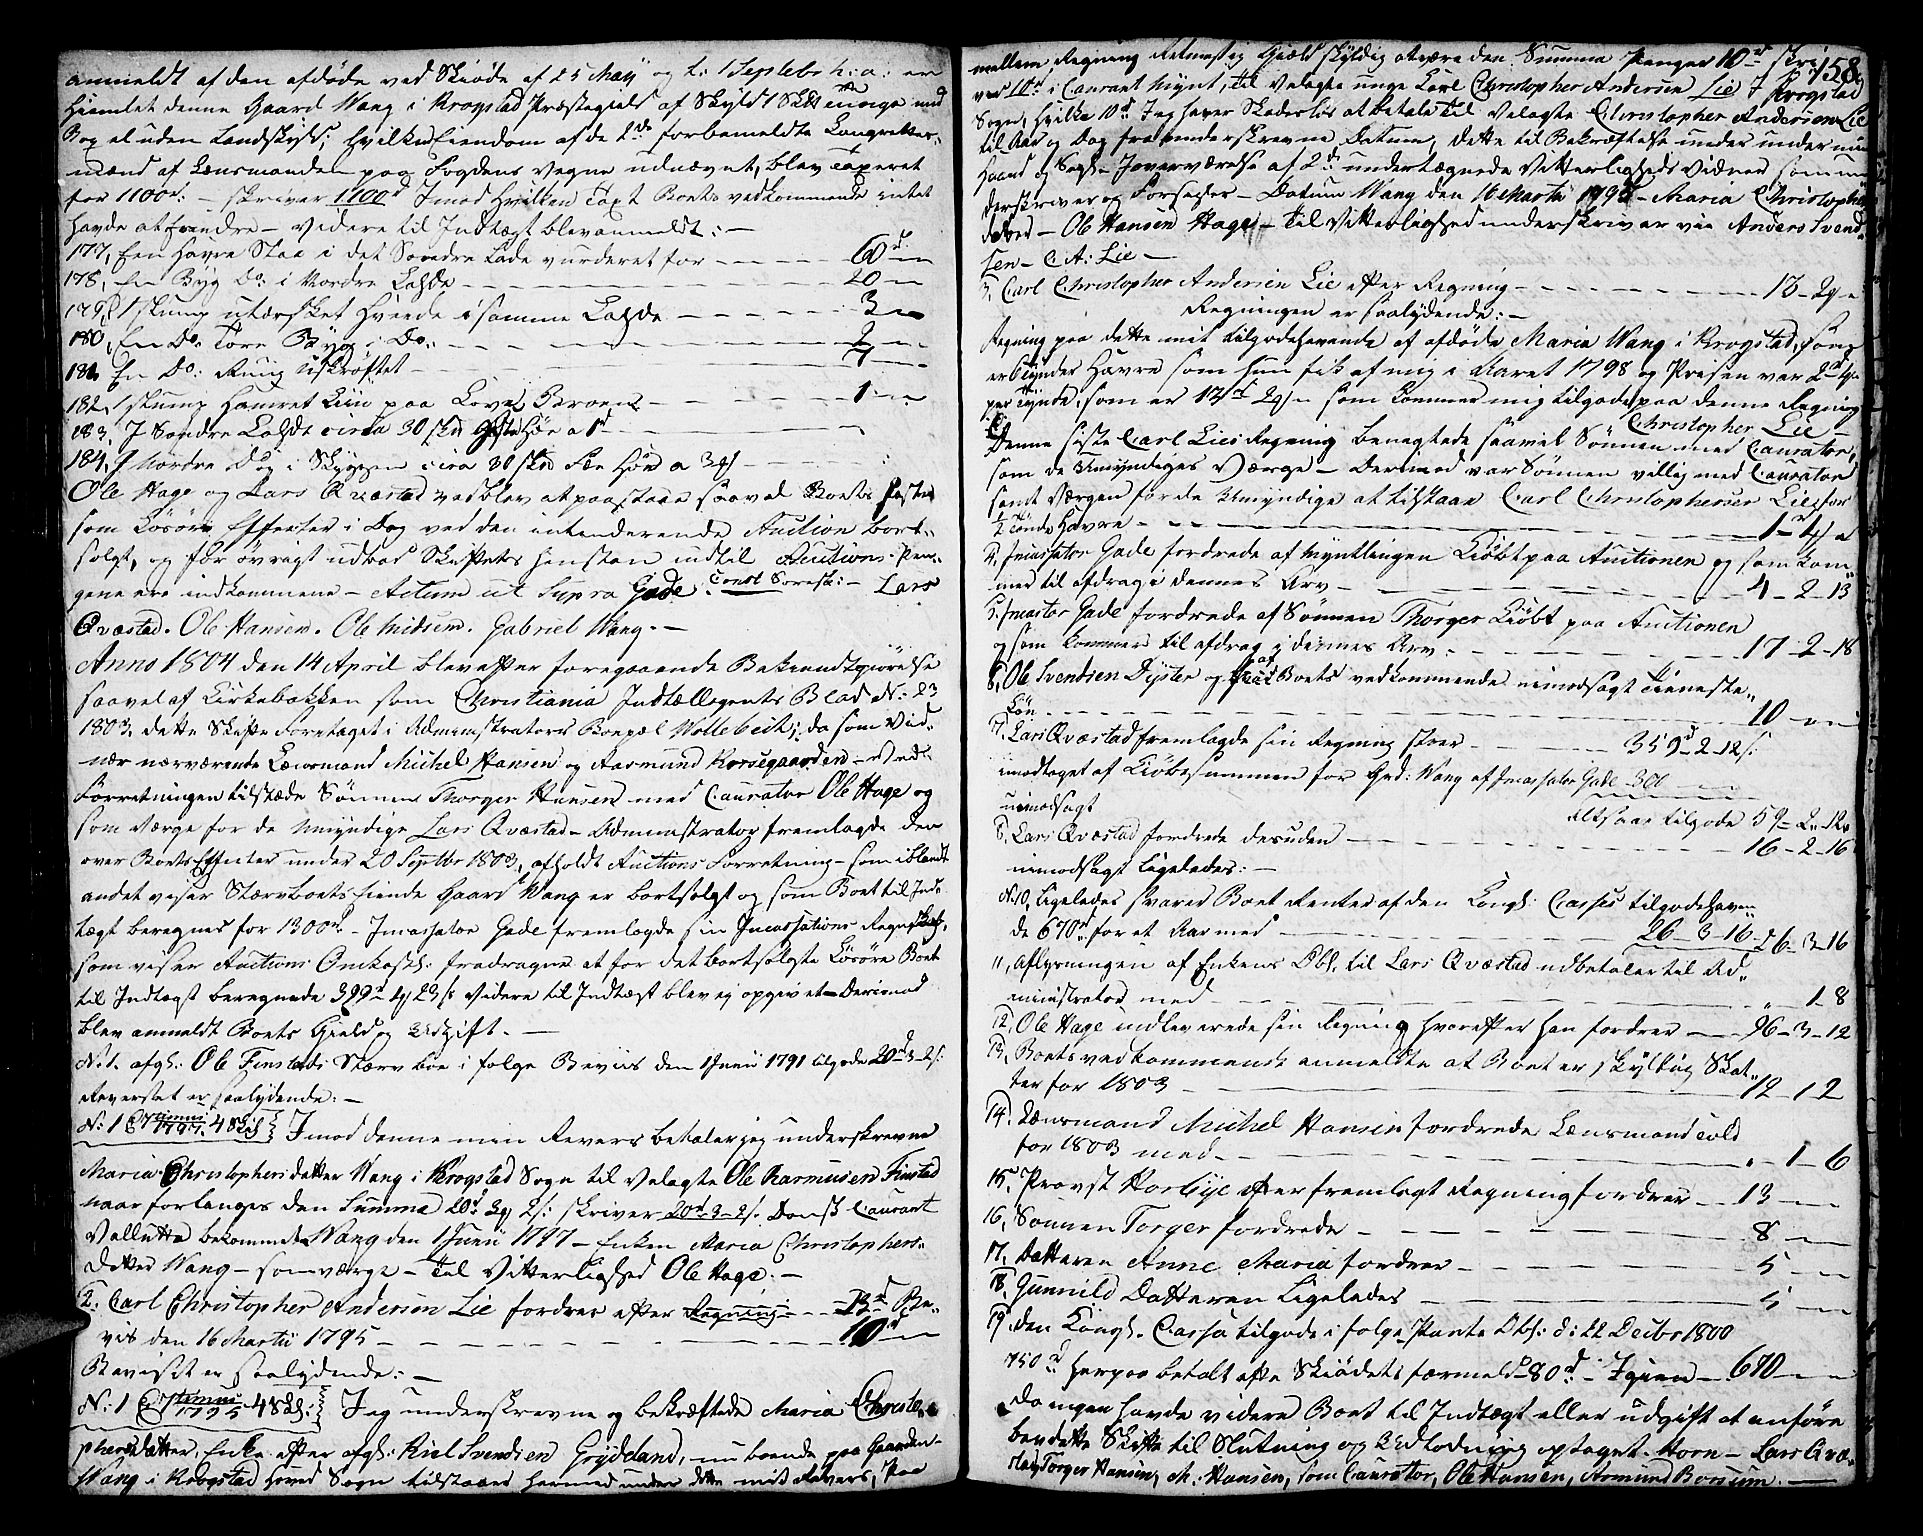 anmeldt af den afdøde ved Skiøde af 25 May og l: 1 Septebr h: a: er
Hiemlet denne Gaard Wang i Krogstad Præstegield af Skyld 1 Skd
Bog el uden Landskyld; hvilken Eiendom af de 2de forbemeldte Laugrettes
mænd af Lænsmanden paa Fogdens Vegne udnævnt, blev taxeret
for 1100rd: – skriver 1100rd Imod hvilken Taxt Boets vedkommende intet
havde at erindre – Videre til Indtægt blev anmeldt: –
177, Een Havre Staa i det Søndre Lade vurderet for – – – – 60rd –
178, En Byg Do: i Nordre Lahde – – – – 20 –
179, 1 skump utærsket Hvede i samme Lahde – – – – 3 –
180, En Do: Tore Byg i Do: – – – – 2 –
181, En Do: Ruug – – – – 4 –
182, 1 skump Hamret Liin paa Love Broen – – – – 1 –
183, I Søndre Lahde circa 30 skd Høe a 1rd – – –
184, I Nordre Do i Skyggen circa 30 skd Fæe Høe a 3 – – –
Ole Hage og Lars Qvæstad vedblev at paastaae saavel Boets faste
som Løsøre Effecter i Dag ved den intenderende Auction bort-
solgt, og for øvrigt udbad Skiftets henstan indtil Auctions-Pen-
gene ere indkommene – Actum ut Supra Gade Const Sorensk: – Lars
Qvæstad. Ole Hansen. Ole Gabriel Wang. –
Anno 1804 den 14 April blev efter foregaaende Bekiendtgiørelse
saavel af Kirkebakken som Christiania Indtællegents Blad N: 23
1803, dette Skifte foretaget i Administrators Boepæl Wollebek; da som Vid-
ner nærværende Lænsmand Michel Hansen og Aasmund Korsegaarden – Ved
Forretningen tilstæde Sønnen Thorger Hansen med Caurator Ole Hage og
som Værge for de Umyndige Lars Qvæstad – Administrator fremlagde den
over Boets Effecter under 20 Septbr 1803, afholdt Auctions Forretning – som iblandt
andet viser Stærvboets Eiende Gaard Wang er bortsolgt og som Boet til Ind-
tægt beregnes for 1300rd – Incassator Gade fremlagde sin Incassations Regnskab,
som viser Auctions Omkost: fradragne at for det bortsolgte Løsøre Boet
til Indtægt beregnede 399rd 4 23 s: Videre til Indtægt blev ej opgivet – Derimod
blev anmeldt Boets Gield og Udgift. –
N: 1. afg: Ole Finstads Stærvboe i følge Beviis den 1 Junii 1791 tilgode 20rd-3-2 s:
Reverset er saalydende: –
N: 1 4 Skil Imod denne min Revers betaler jeg underskrevne
Maria Christophersdatter Wang i Krogstad Sogn til Velagte Ole Rasmusen Finstad
naar forlanges den Summa 20rd 3 2 s: skriver 20rd-3-2 s: Dansk Caurant
Vallutta bekommet Wang den 1 Junii 1797 – Enken Maria Christophers-
datter Wang – som værge – Til Vitterlighed Ole Hage. –
2. Carl Christopher Andersen Lie fordrer efter Regning – 13rd Be-
vis den 16 Martii 1795 – – – – 10rd –
Beviset er saalydende: –
N: 1 1795 4 Sk: Jeg underskrevne og bekræftede Maria Christo-
phersdatter, Enke efter afg: Kiel Svendsen Grydeland, nu boende paa Gaarden
Wang i Krogstad Hoved Sogn tilstaaer hermed under dette mit Revers, Paa
158
mellem Regning Retmæsig Gield skyldig at være den Summa Penger 10rd skri-
ver 10rd: i Caurant Mynt, til Velagte unge Carl Christopher Andersen Lie i Krogstad
Sogn, hvilke 10rd Jeg haver Skadesløs at betale til Velagte Christopher Andersen Lie
til Aar og Dag fra underskrevne Datum, dette til Bekræftelse under under min
Haand og Segl – I overværelse af 2de undertegnede Vitterligheds Vidner som un-
derskriver og Forsegler – Datum Wang den 16 Martii 1795 – Maria Christophers
datter – Ole Hansen Hage – Til Vitterlighed underskriver vii Anders Svend-
sen – C. A: Lie –
3, Carl Christopher Andersen Lie efter Regning – – – – 13-2 –
Regningen er saalydende: –
Regning paa dette mit tilgodehavende af afdøde Maria Wang i Krogstad, som
er 6 Tynder Havre som hun fik af mig i Aaret 1798 og Prisen var 2rd
per Tynde, som er 13rd 2 – som kommer mig tilgode paa denne Regning
Christopher Lie –
Denne siste Carl Lies Regning benegtede saavel Sønnen med Caurator,
som de Umyndiges Værge – Derimod var Sønnen villig med Caurator
samt Værgen for de Umyndige at tilstaae Carl Christophersen Lie for
½ Tønde Havre – – – – 1rd-4
4, Incassator Gade fordrede af Myntlingen Kiøbt paa Auctionen og som kom-
mer til afdrag i dennes Arv – – – – 4-2-13
5, Incastor Gade fordrede af Sønnen Thorger Kiøbt paa Auctionen
og som kommer til afdrag i dennes Arv – – – – 17-2-18
6, Ole Svendsen Dyster og af Boets vedkommende uimodsagt Tieneste-
Løn – – – – 10 –
7, Lars Qvæstad fremlagde sin Regning stoer – – – 359rd-2-12 s:
imodtaget af Kiøbesummen for Grd: Wang af Incassator Gade 300
uimodsagt
Altsaa tilgode 59-2-12
8, Lars Qvæstad fordrede desuden – – – – 16-2-16
uimodsagt Ligeledes: –
N: 10, Ligeledes svarer Boet Renter af den Kongl: Casses tilgodehaven-
de 670rd for et Aar med – – – 26-3-16 26-3-16
11, Aflysningen af Enkens Obl: til Lars Qvæstad udbetaler til Ad-
ministrator med – – – – „-1-8
12, Ole Hage indleverede sin Regning hvorefter han fordrer – 96-3-12
13, Boets vedkommende anmeldte at Boet er skyldig Skat-
ter for 1803 – – – – 12-1-2
14, Lænsmand Michel Hansen fordrede Lænsmand Told
for 1803 med – – – – „-1-6
15, Provst Horbye efter fremlagt Regning fordrer – 13 –
16, Sønnen Torger fordrede – – – – 8 –
17, Datteren Anne Maria fordrer – – – – 5 –
18, Gunnild Datteren Ligeledes – – – – 5 –
19, den Kongl. Cassa tilgode i følge Pante Obl: d: 22 Decbr 1800
750rd herpaa betalt efter Skiødets formeld 80rd – Igien – 670 –
Da ingen havde videre Boet til Indtægt eller udgift at anføre
blev dette Skifte til Slutning og Udlodning optaget. Horn – Lars Qvæ-
stad, Torger Hansen, M: Hansen, som Caurator, Ole Hansen, Asmund Borsum. –